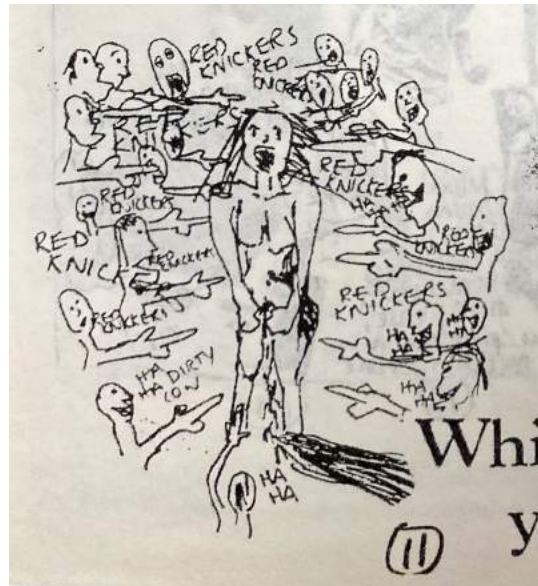 RED
KNICKERS
RED
KNICKERS
RED
KNI
RED
KNICKERS
HA
HA
RED
KNICKERS
RED
KNIC
RED
KNICKERS
RED
KNICKERS
RED
KNICKERS
RED
KNICKERS
HA
HA
HA
HA
HA
HA
DIRTY
COW
HA
HA
HA
HA
Whi
y
11